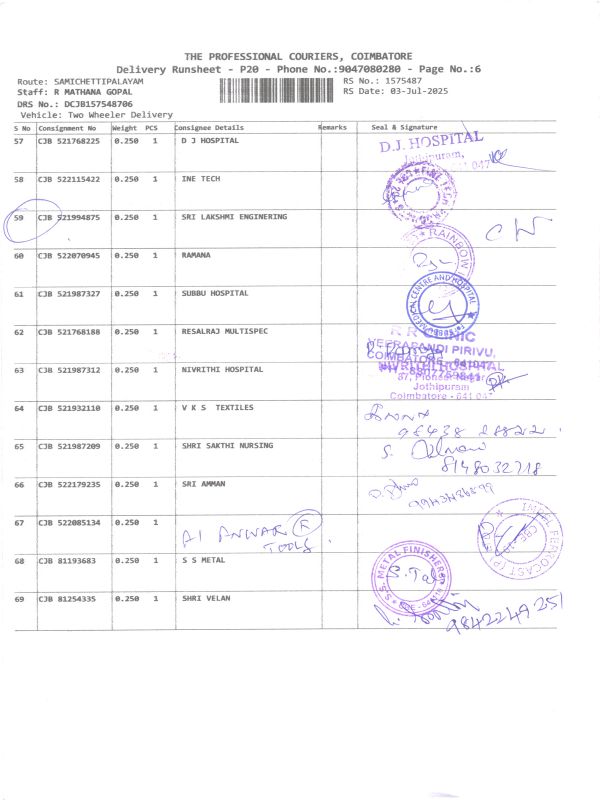 THE PROFESSIONAL COURIERS, COIMBATORE
Delivery Runsheet - P20 - Phone No.:9047080280 - Page No.:6
Route: SAMICHETTIPALAYAM RS No.: 1575487
Staff: R MATHANA GOPAL RS Date: 03-Jul-2025
DRS No.: DCJB157548706
Vehicle: Two Wheeler Delivery
S No Consignment No Weight PCS Consignee Details Remarks Seal & Signature
57 CJB 521768225 0.250 1 D J HOSPITAL
D.J. HOSPITAL
Jothipuram,
58 CJB 522115422 0.250 1 INE TECH
59 CJB 521994875 0.250 1 SRI LAKSHMI ENGINERING
60 CJB 522070945 0.250 1 RAMANA
RAINBOW
61 CJB 521987327 0.250 1 SUBBU HOSPITAL
MEDICAL CENTRE AND HOSPITAL
62 CJB 521768188 0.250 1 RESALRAJ MULTISPEC
VEERAPANDI PIRIVU,
COIMBATORE
63 CJB 521987312 0.250 1 NIVRITHI HOSPITAL
NIVRITHI HOSPITAL
Jothipuram
Coimbatore - 641 047
64 CJB 521932110 0.250 1 V K S TEXTILES
65 CJB 521987209 0.250 1 SHRI SAKTHI NURSING
8148032718
66 CJB 522179235 0.250 1 SRI AMMAN
67 CJB 522085134 0.250 1
AI ANWAR
TOOLS
68 CJB 81193683 0.250 1 S S METAL
S.S. METAL FINISHERS
69 CJB 81254335 0.250 1 SHRI VELAN
9842249251